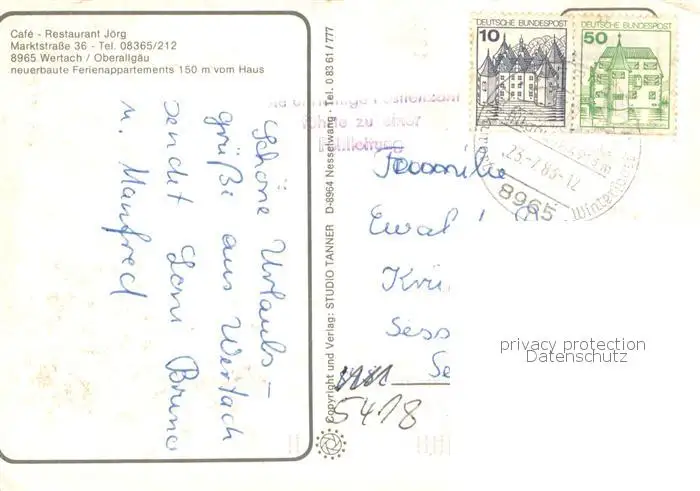 Café - Restaurant Jörg
Marktstraße 36 - Tel. 08365/212
8965 Wertach / Oberallgäu
neuerbaute Ferienappartements 150 m vom Haus
Schöne Urlaubs-
grüße aus Wertach
sendet Loni Bruno
u. Manfred
Copyright und Verlag: STUDIO TANNER D-8964 Nesselwang · Tel. 08361/777
DEUTSCHE BUNDESPOST
10
DEUTSCHE BUNDESPOST
50
23.-7.83-12
8965
Winter
führte zu einer
Familie
Ewal
Krü
Sess
Se
5418
privacy protection
Datenschutz